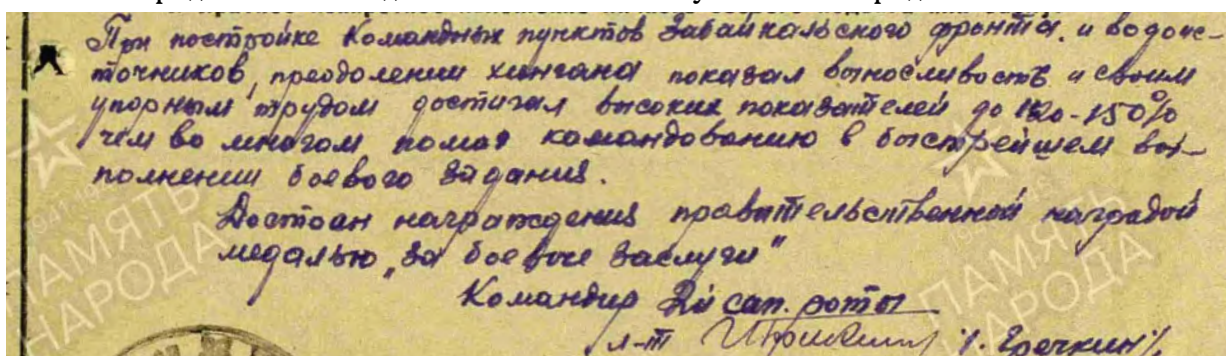 При постройке Командных пунктов Забайкальского фронта, и водоис-
точников, преодолении хингана показал выносливость и своим
упорным трудом достигал высоких показателей до 120-150%
чем во многом помог командованию в быстрейшем вы-
полнении боевого задания.
Достоин награждения правительственной наградой
медалью "За боевые заслуги"
Командир 2й сап. роты
л-т /. Гречкин/.
ПАМЯТЬ НАРОДА
ПАМЯТЬ НАРОДА